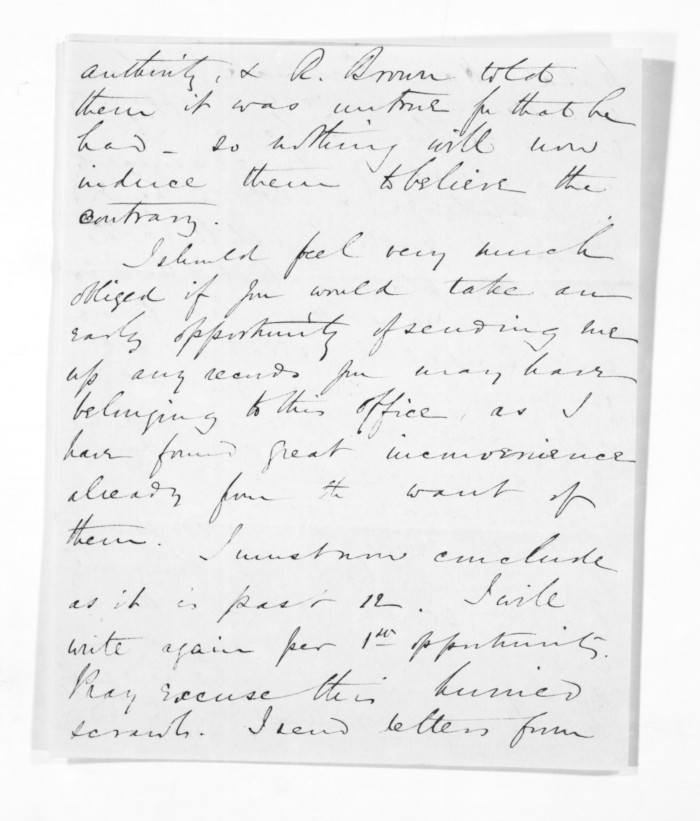 authority, & R. Brown told
them it was untrue for that he
had - so nothing will now
induce them to believe the
contrary.
I should feel very much
obliged if you would take an
early opportunity of sending me
up any records you may have
belonging to this office, as I
have found great inconvenience
already from the want of
them. I must now conclude
as it is past 12. I will
write again per 1st opportunity.
Pray excuse this hurried
scrawl. I send letters from